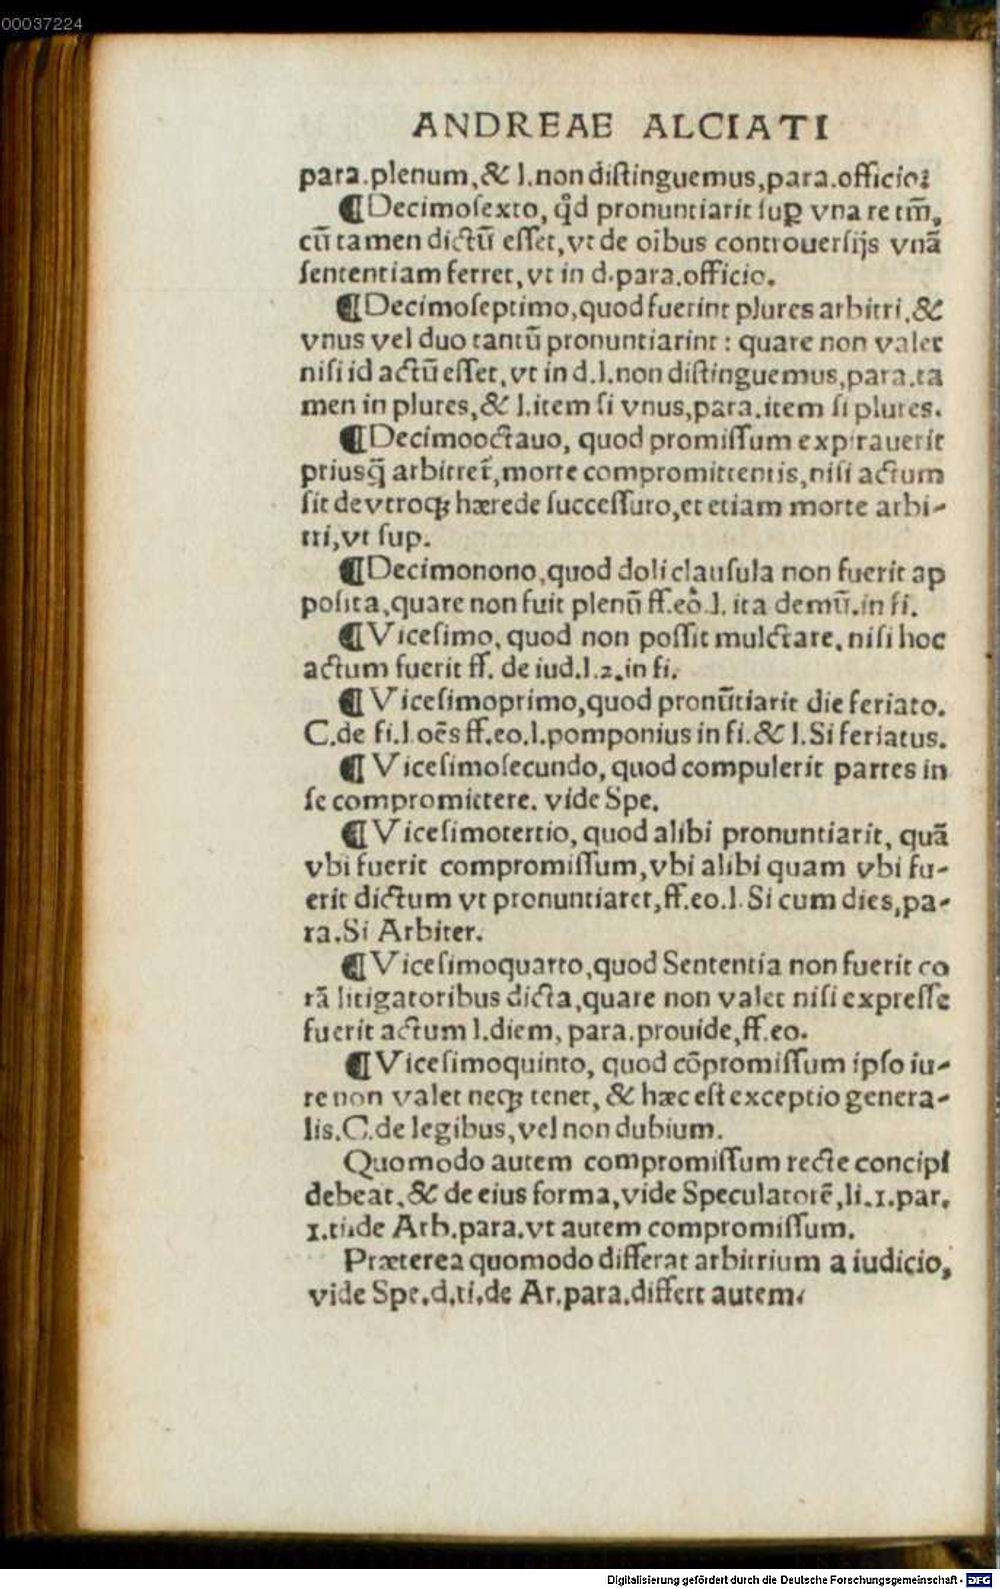 00037224
ANDREAE ALCIATI
para.plenum,& l.non distinguemus,para.officio:
¶Decimosexto, q̊d pronuntiarit sup̱ vna re tm̄,
cū tamen dictū esset,vt de oībus controuersijs vnā
sententiam ferret, vt in d.para.officio.
¶Decimoseptimo,quod fuerint plures arbitri,&
vnus vel duo tantū pronuntiarint : quare non valet
nisi id actū esset, vt in d.l.non distinguemus,para.ta
men in plures,& l.item si vnus,para.item si plures.
¶Decimooctauo, quod promissum expirauerit
priusq̄ arbitret̄,morte compromittentis,nisi actum
sit de vtroqꝫ hærede successuro,et etiam morte arbi-
tri,vt sup.
¶Decimonono,quod doli clausula non fuerit ap
posita,quare non fuit plenū ff.eo.l. ita demū.in fi.
¶Vicesimo, quod non possit mulctare, nisi hoc
actum fuerit ff. de iud.l.2.in fi.
¶Vicesimoprimo,quod pronūtiarit die feriato.
C.de fi.l oēs ff.eo.l.pomponius in fi.& l.Si feriatus.
¶Vicesimosecundo, quod compulerit partes in
se compromittere. vide Spe.
¶Vicesimotertio, quod alibi pronuntiarit, quā
vbi fuerit compromissum,vbi alibi quam vbi fu-
erit dictum vt pronuntiaret,ff.eo.l. Si cum dies,pa-
ra.Si Arbiter.
¶Vicesimoquarto,quod Sententia non fuerit co
rā litigatoribus dicta,quare non valet nisi expresse
fuerit actum l.diem, para.prouide,ff.eo.
¶Vicesimoquinto, quod cōpromissum ipso iu-
re non valet neqꝫ tenet, & hæc est exceptio genera-
lis.C.de legibus,vel non dubium.
Quomodo autem compromissum recte concipi
debeat,& de eius forma,vide Speculatorē,li.1.par.
1.ti.de Arb.para.vt autem compromissum.
Præterea quomodo differat arbitrium a iudicio,
vide Spe.d.ti.de Ar.para.differt autem.
Digitalisierung gefördert durch die Deutsche Forschungsgemeinschaft - DFG